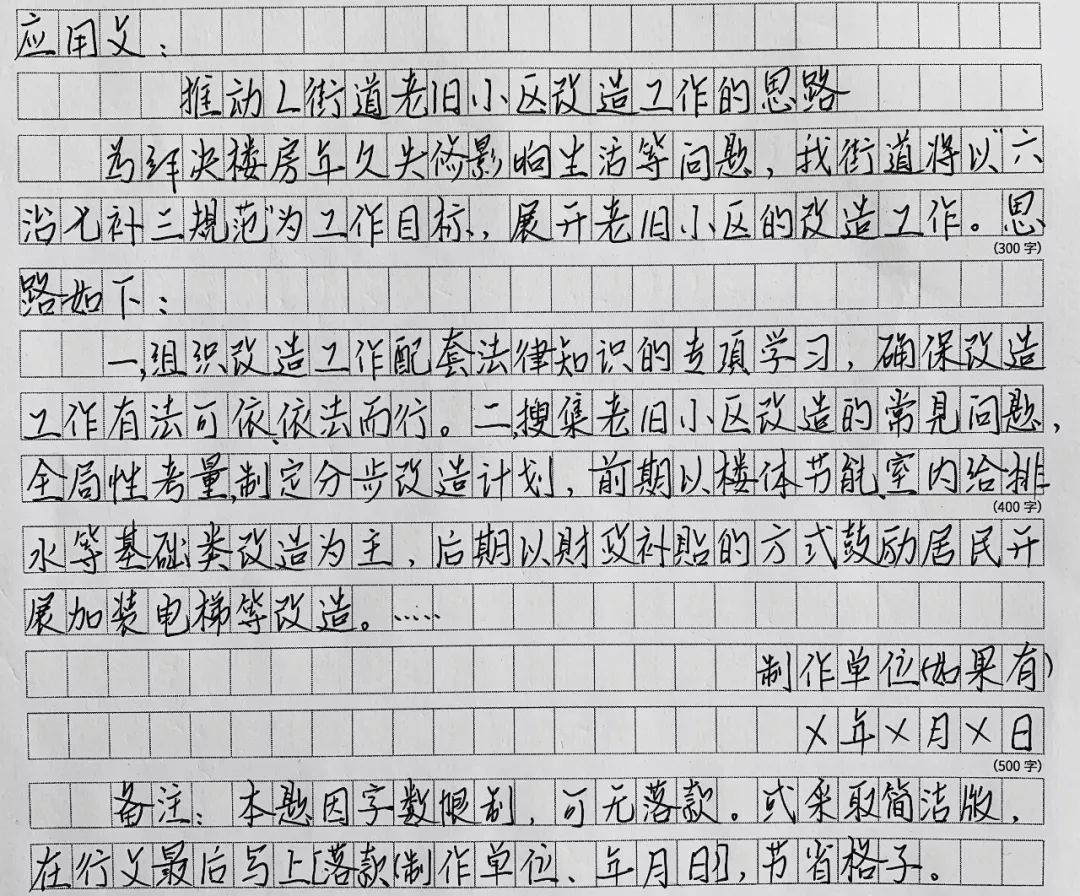 应用文：
推动L街道老旧小区改造工作的思路
为解决楼房年久失修影响生活等问题，我街道将以“六
治七补三规范”为工作目标，展开老旧小区的改造工作。思
(300字)
路如下：
一、组织改造工作配套法律知识的专项学习，确保改造
工作有法可依、依法而行。二、搜集老旧小区改造的常见问题，
全局性考量，制定分步改造计划，前期以楼体节能、室内给排
(400字)
水等基础类改造为主，后期以财政补贴的方式鼓励居民开
展加装电梯等改造。……
制作单位(如果有)
X年X月X日
(500字)
备注：本题因字数限制，可无落款。或采取简洁版，
在行文最后写上[落款(制作单位、年月日)]，节省格子。